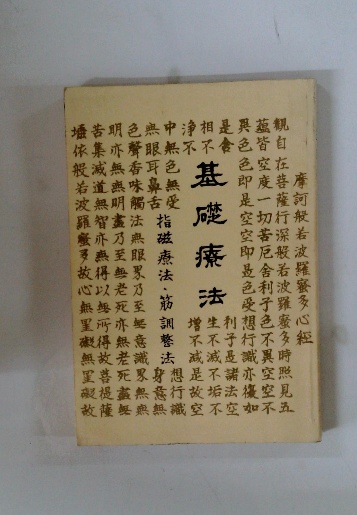 摩訶般若波羅蜜多心經
觀自在菩薩行深般若波羅蜜多時照見五
蘊皆空度一切苦厄舍利子色不異空空不
異色色即是空空即是色受想行識亦復如
是舍利子是諸法空
相不生不滅不垢不
淨不增不減是故空
基礎療法
中無色無受想行識
指磁療法・筋調整法
無眼耳鼻舌身意無
色聲香味觸法無眼界乃至無意識界無無
明亦無無明盡乃至無老死亦無老死盡無
苦集滅道無智亦無得以無所得故菩提薩
埵依般若波羅蜜多故心無罣礙無罣礙故